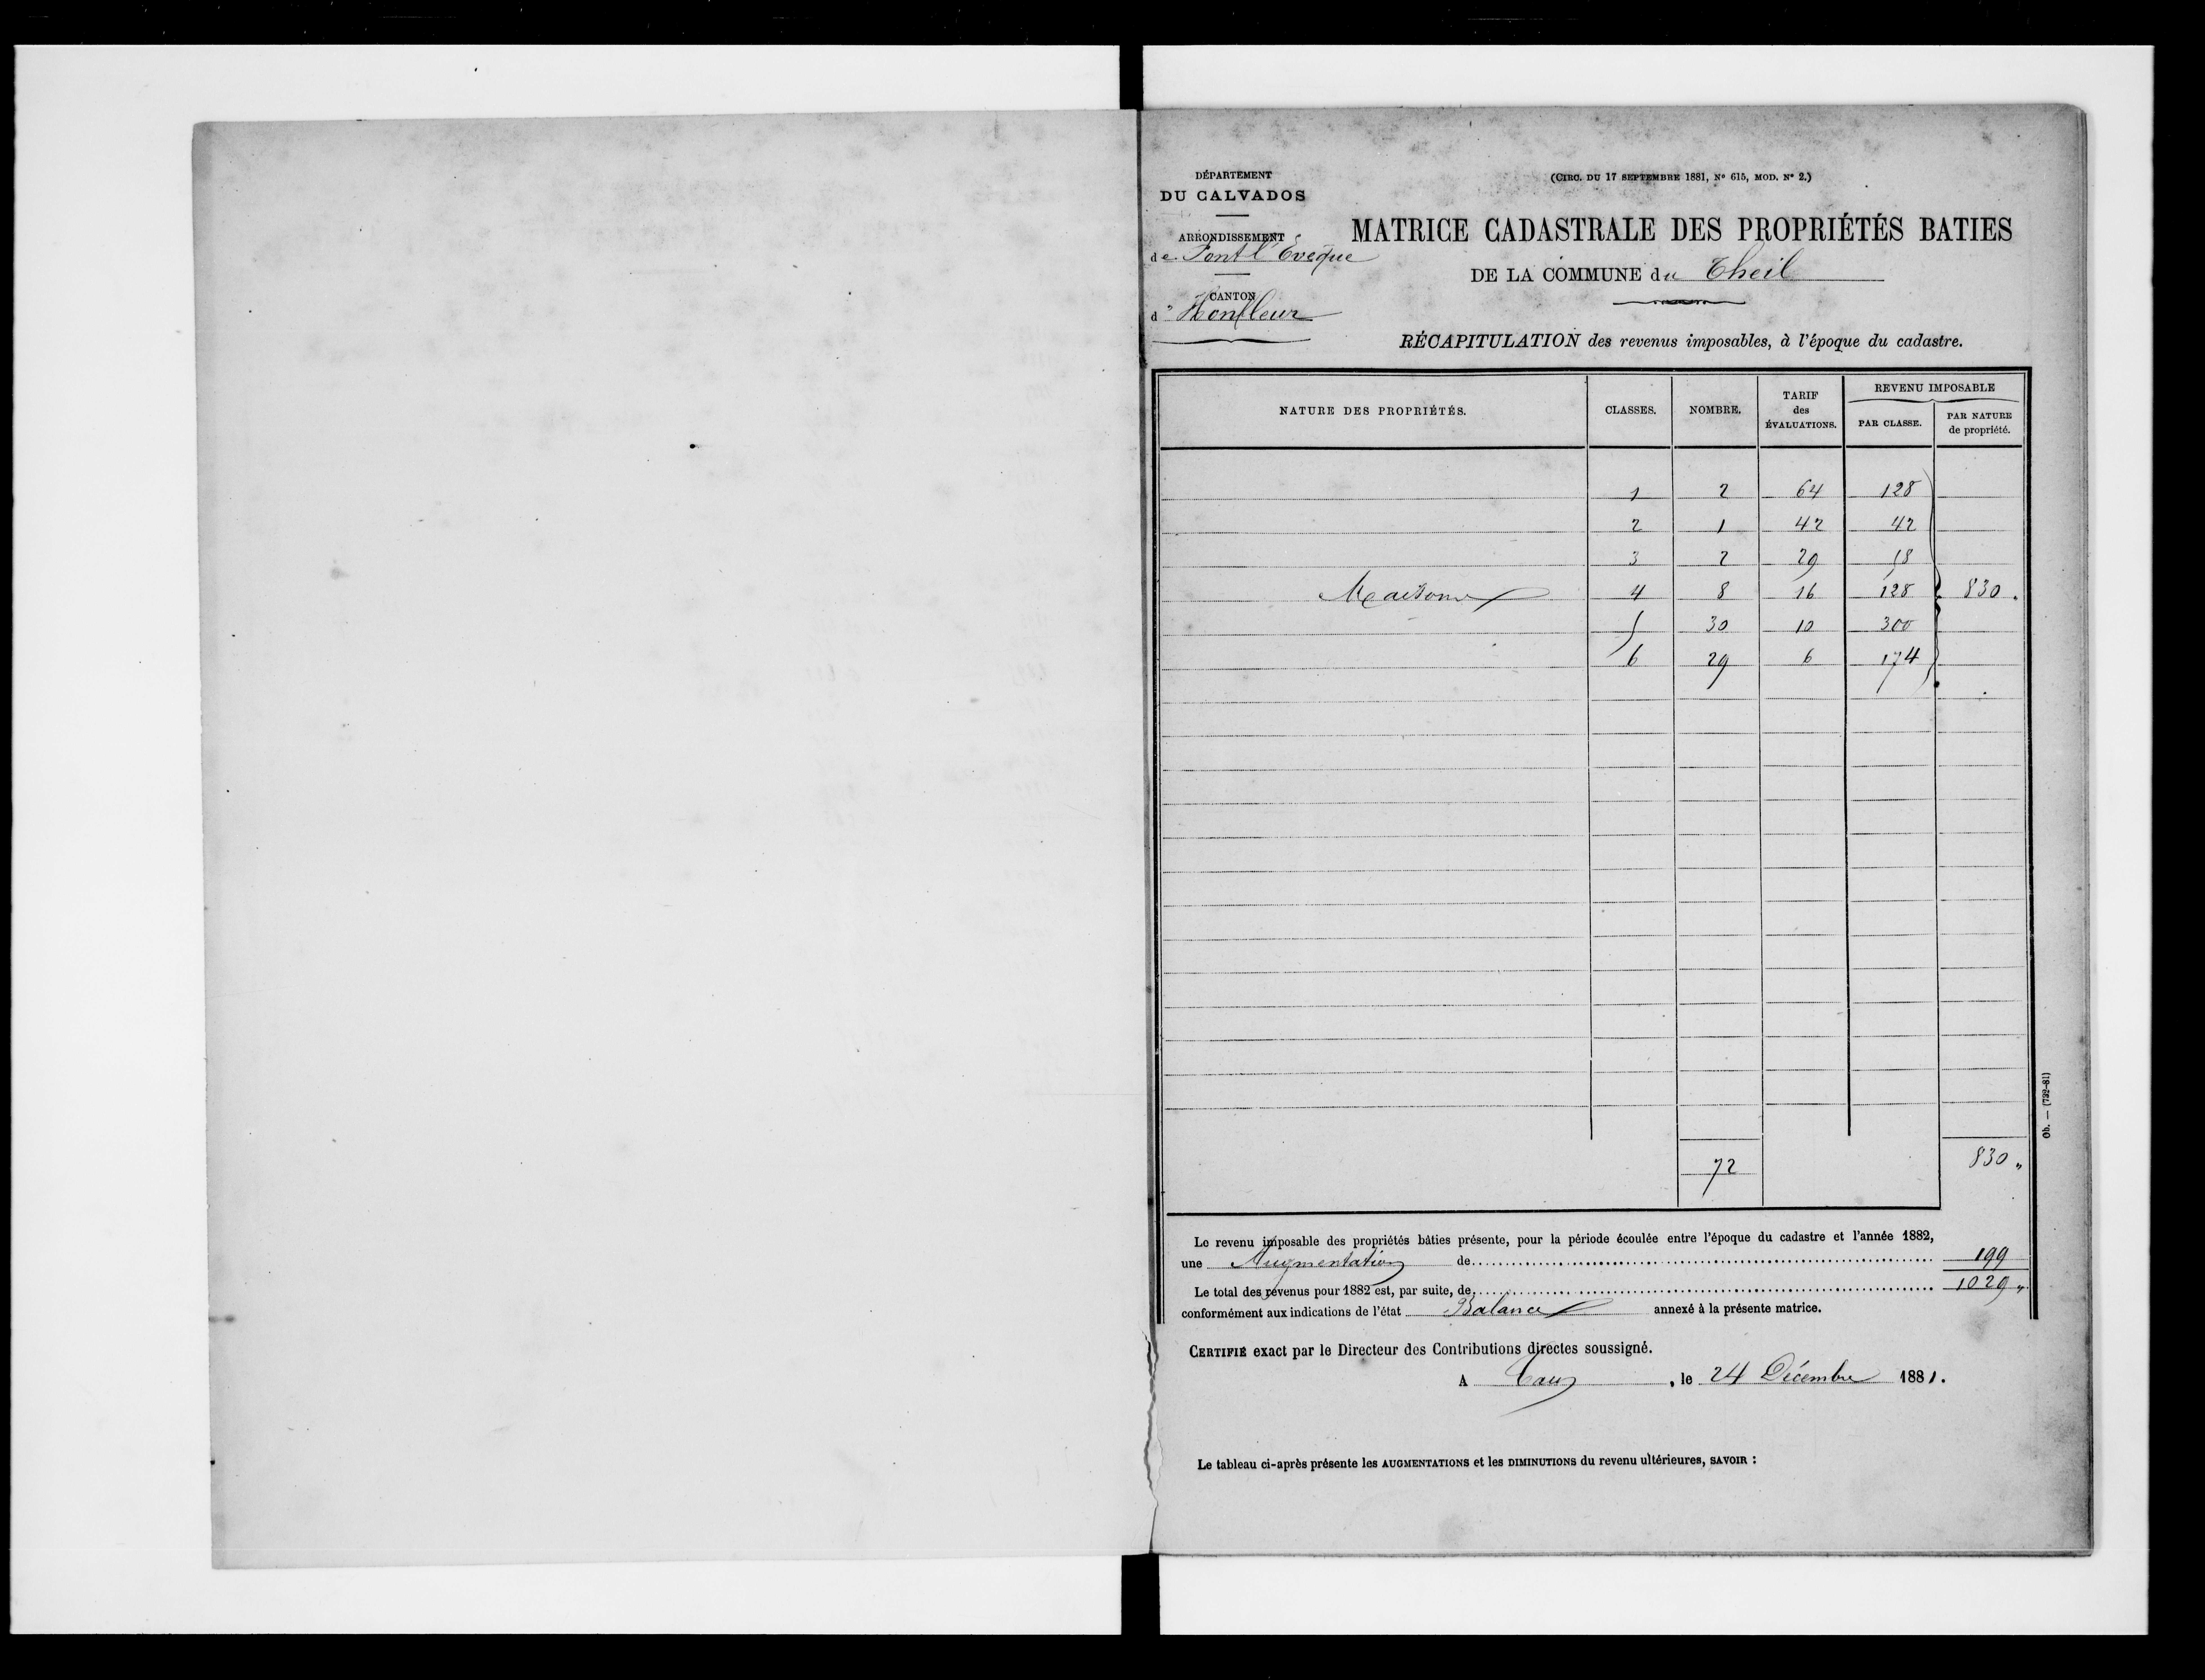 DÉPARTEMENT
DU CALVADOS
ARRONDISSEMENT
de Pont l'Evêque
CANTON
d' Honfleur
(CIRC. DU 17 SEPTEMBRE 1881, N° 615, MOD. N° 2.)
MATRICE CADASTRALE DES PROPRIÉTÉS BATIES
DE LA COMMUNE du Theil
RÉCAPITULATION des revenus imposables, à l'époque du cadastre.
NATURE DES PROPRIÉTÉS. CLASSES. NOMBRE. TARIF des ÉVALUATIONS. REVENU IMPOSABLE PAR CLASSE. PAR NATURE de propriété.
1 2 64 128
2 1 42 42
3 2 29 58
Maisons 4 8 16 128 830 "
5 30 10 300
6 29 6 174
72 830 "
Le revenu imposable des propriétés bâties présente, pour la période écoulée entre l'époque du cadastre et l'année 1882,
une Augmentation de 199
Le total des revenus pour 1882 est, par suite, de 1029 "
conformément aux indications de l'état Balance annexé à la présente matrice.
CERTIFIÉ exact par le Directeur des Contributions directes soussigné.
A Caen, le 24 Décembre 1881.
Le tableau ci-après présente les AUGMENTATIONS et les DIMINUTIONS du revenu ultérieures, SAVOIR :
Ob. — (732-81)